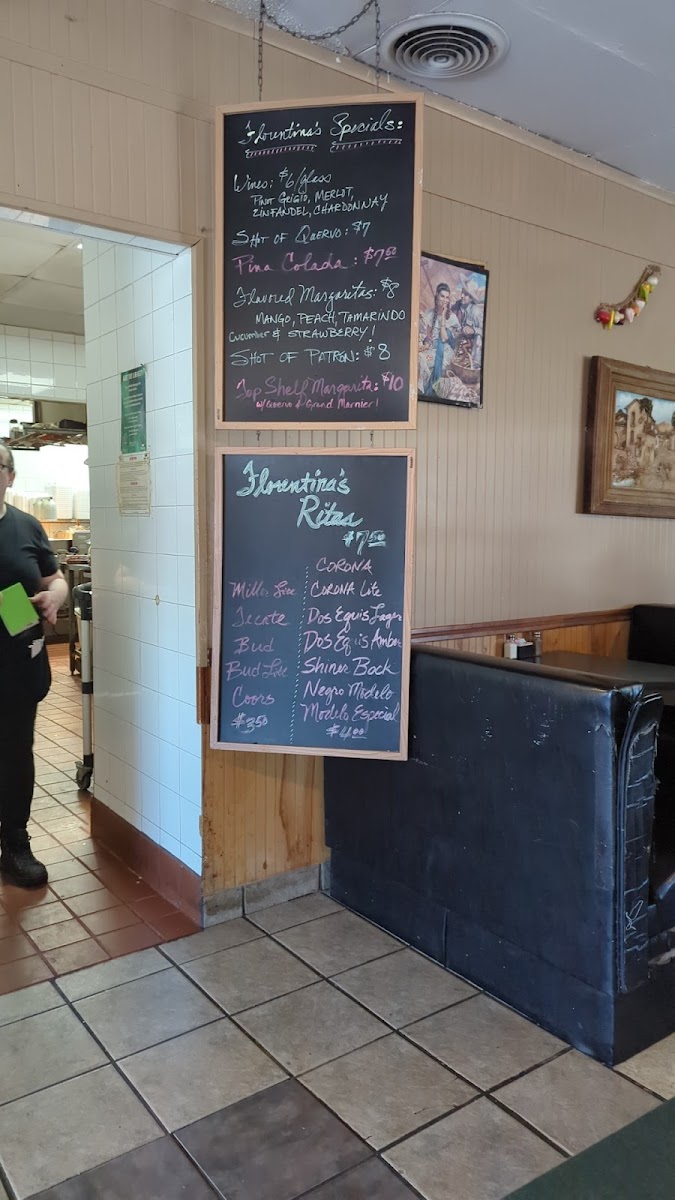 Florentina's Specials:
Wines: $6/glass
Pinot Grigio, Merlot,
Zinfandel, Chardonnay
Shot of Quervo: $7
Pina Colada: $7.50
Flavored Margaritas: $8
Mango, Peach, Tamarindo
Cucumber & Strawberry!
Shot of Patron: $8
Top Shelf Margarita: $10
w/ Quervo & Grand Marnier!
Florentina's
Ritas
$7.50
Corona
Miller Lite Corona Lite
Tecate Dos Equis Lager
Bud Dos Equis Amber
Bud Lite Shiner Bock
Coors Negro Modelo
$3.50 Modelo Especial
$4.00